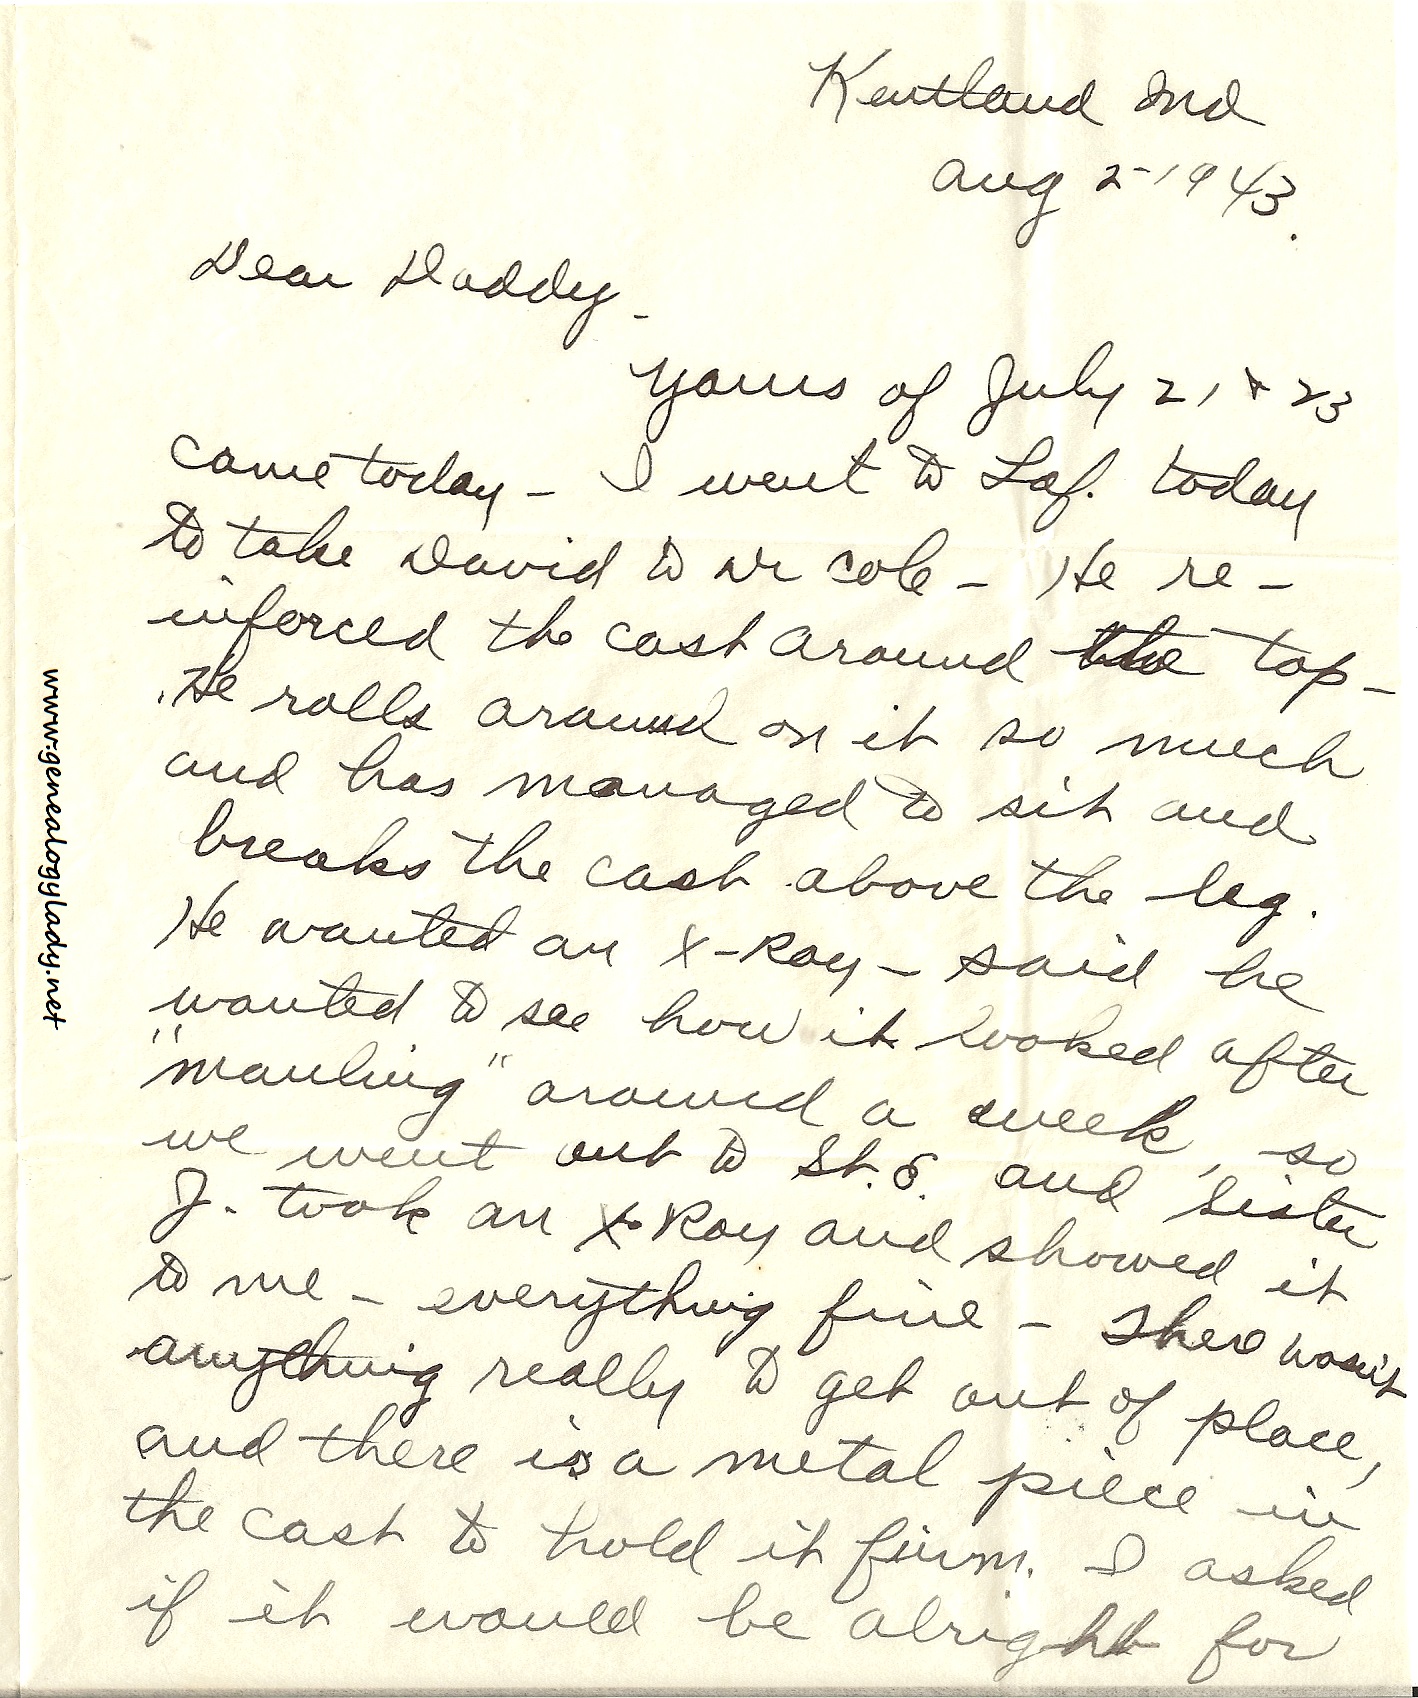 Kentland Ind
Aug 2-1943.
Dear Daddy-
Yours of July 21 & 23
came today - I went to Laf. today
to take David to Dr Cole - He re-
inforced the cast around the top -
He rolls around on it so much
and has managed to sit and
breaks the cast above the leg.
He wanted an X-Ray - said he
wanted to see how it looked after
"mauling" around a week, so
we went out to St. E. and Sister
J. took an X-Ray and showed it
to me - everything fine - There wasn't
anything really to get out of place,
and there is a metal piece in
the cast to hold it firm. I asked
if it would be alright for
www.genealogylady.net